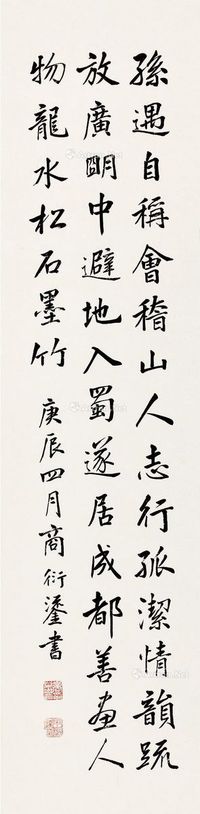 孫遇自稱會稽山人志行孤潔情韻疏
放廣明中避地入蜀遂居成都善畫人
物龍水松石墨竹
庚辰四月商衍鎏書